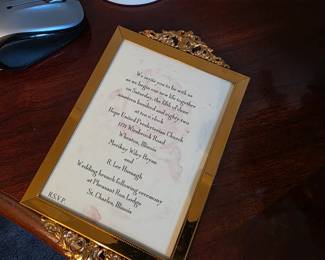 We invite you to be with us
as we begin our new life together
on Saturday, the fifth of June
nineteen hundred and eighty-two
at ten o'clock
Hope United Presbyterian Church
1771 Wiesbrook Road
Wheaton, Illinois
Merikay Wiley Bryan
and
R. Lee
Wedding brunch following ceremony
at Pheasant Run Lodge
St. Charles, Illinois
R.S.V.P.